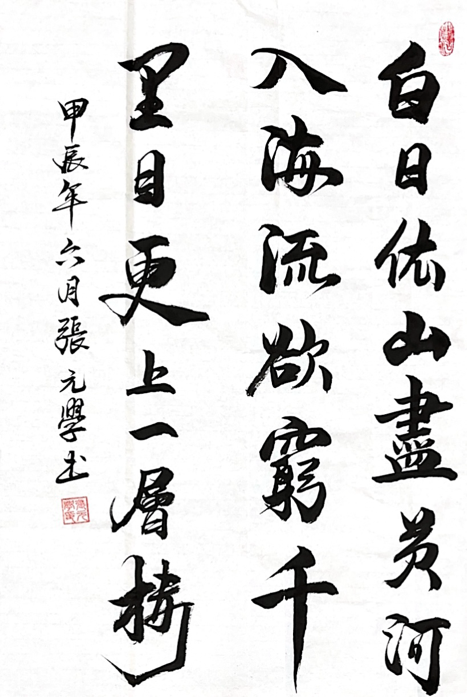 白日依山盡黄河
入海流欲窮千
里目更上一層楼
甲辰年六月張元學书